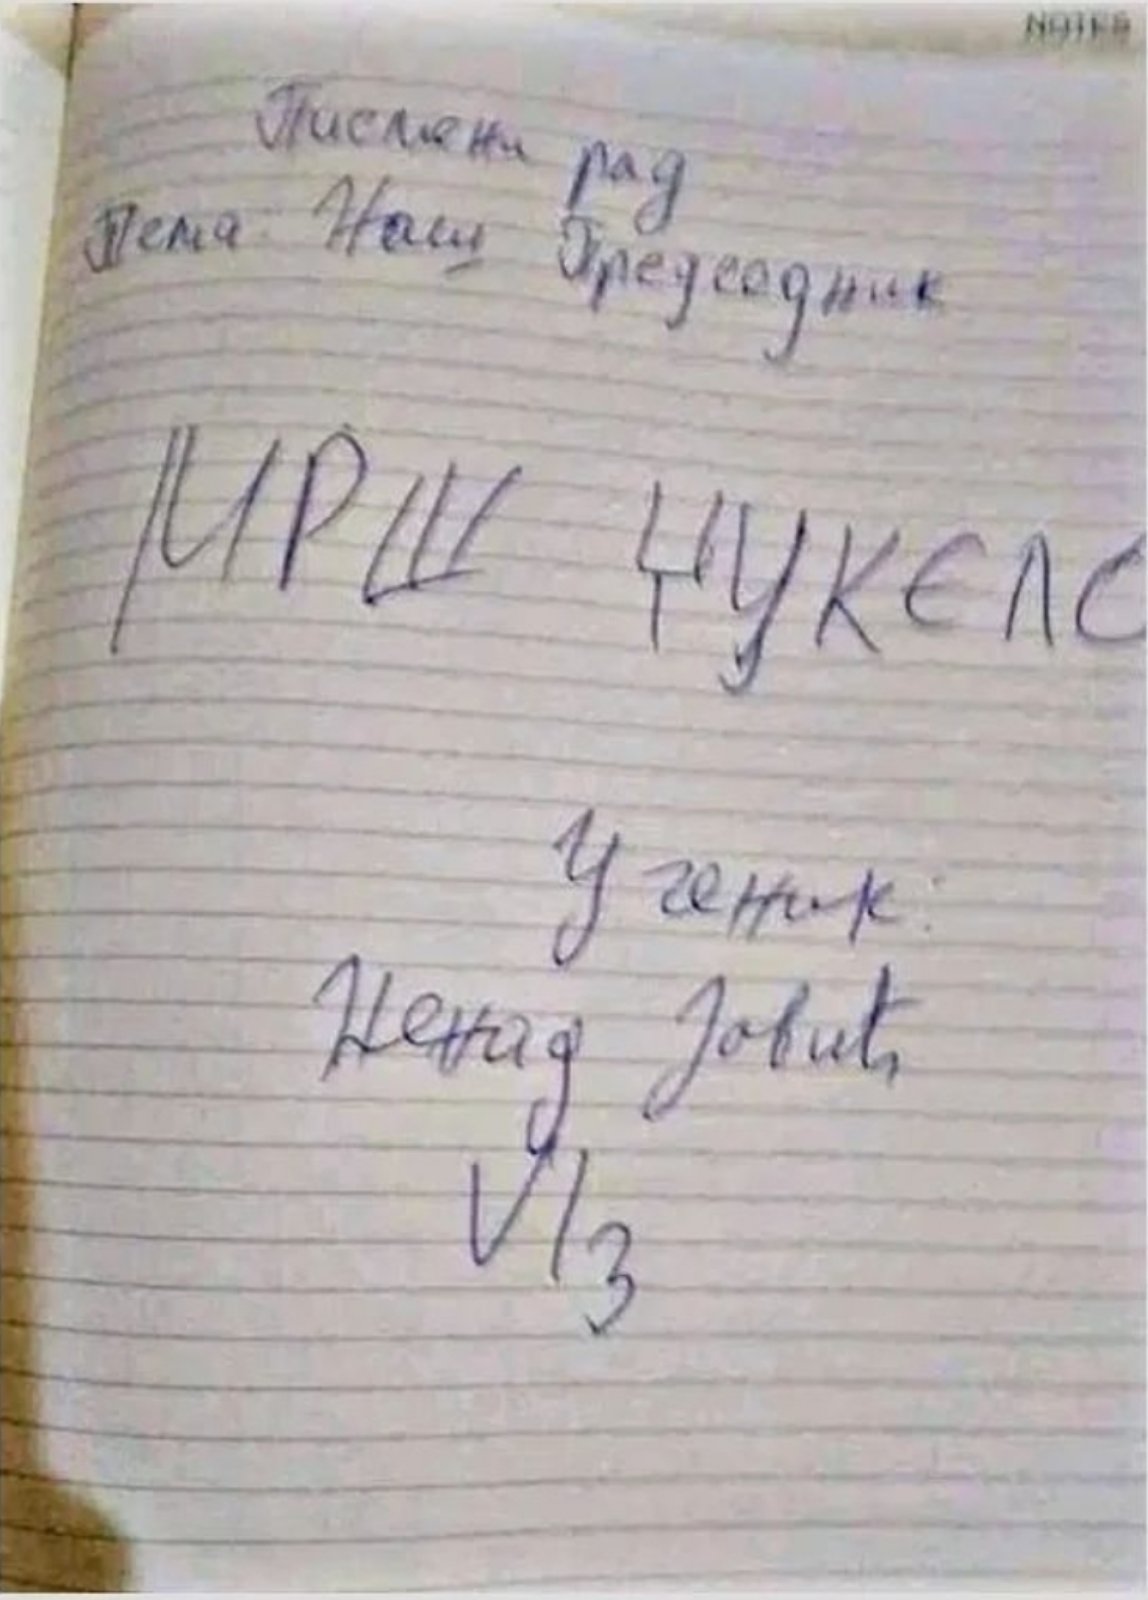 NOTES
Писмени рад
Тема: Наш Председник
МРШ ЏУКЕЛО
Ученик:
Ненад Јовић
VI3